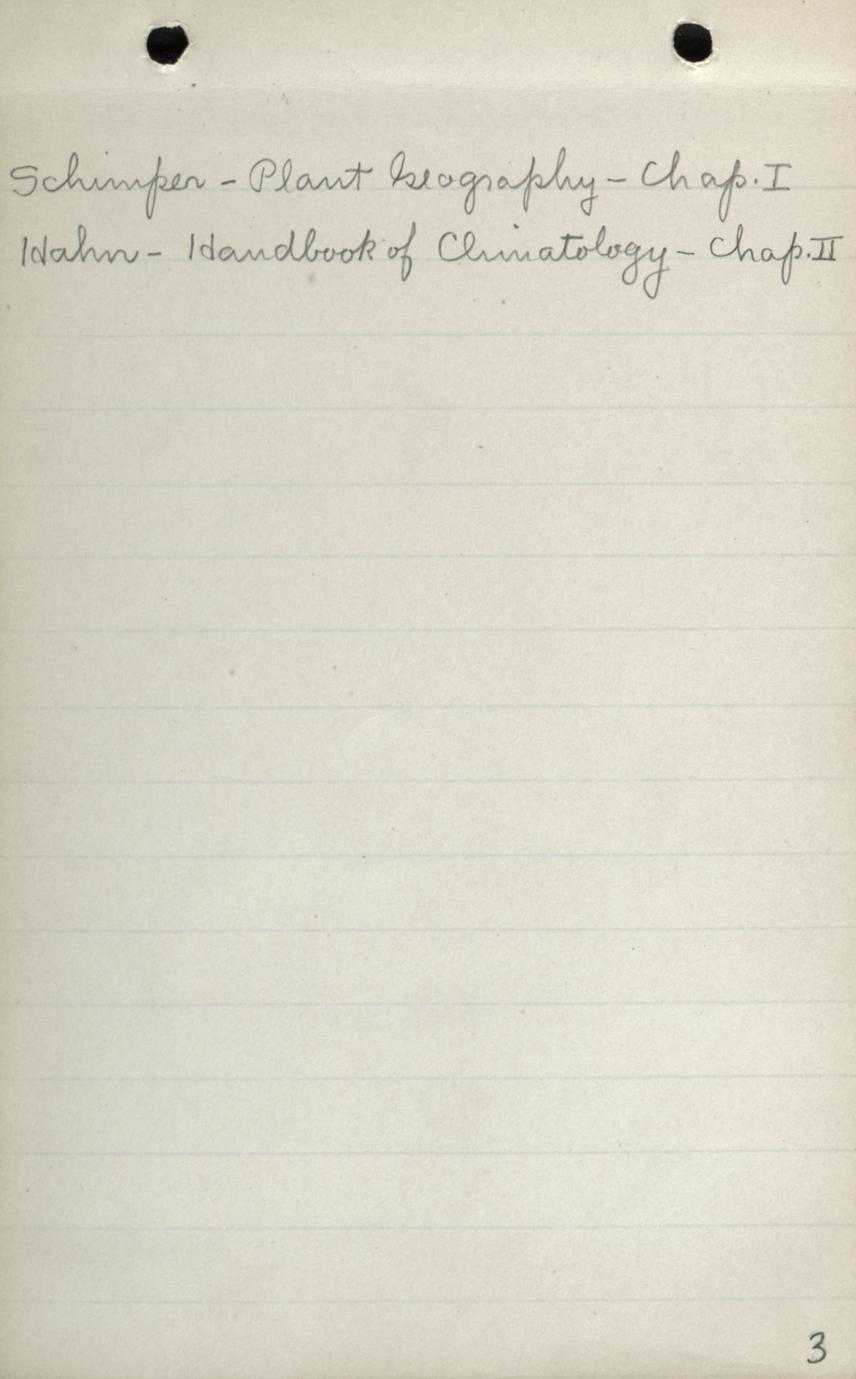 Schimper - Plant Geography - Chap. I
Hahn - Handbook of Climatology - Chap. II
3